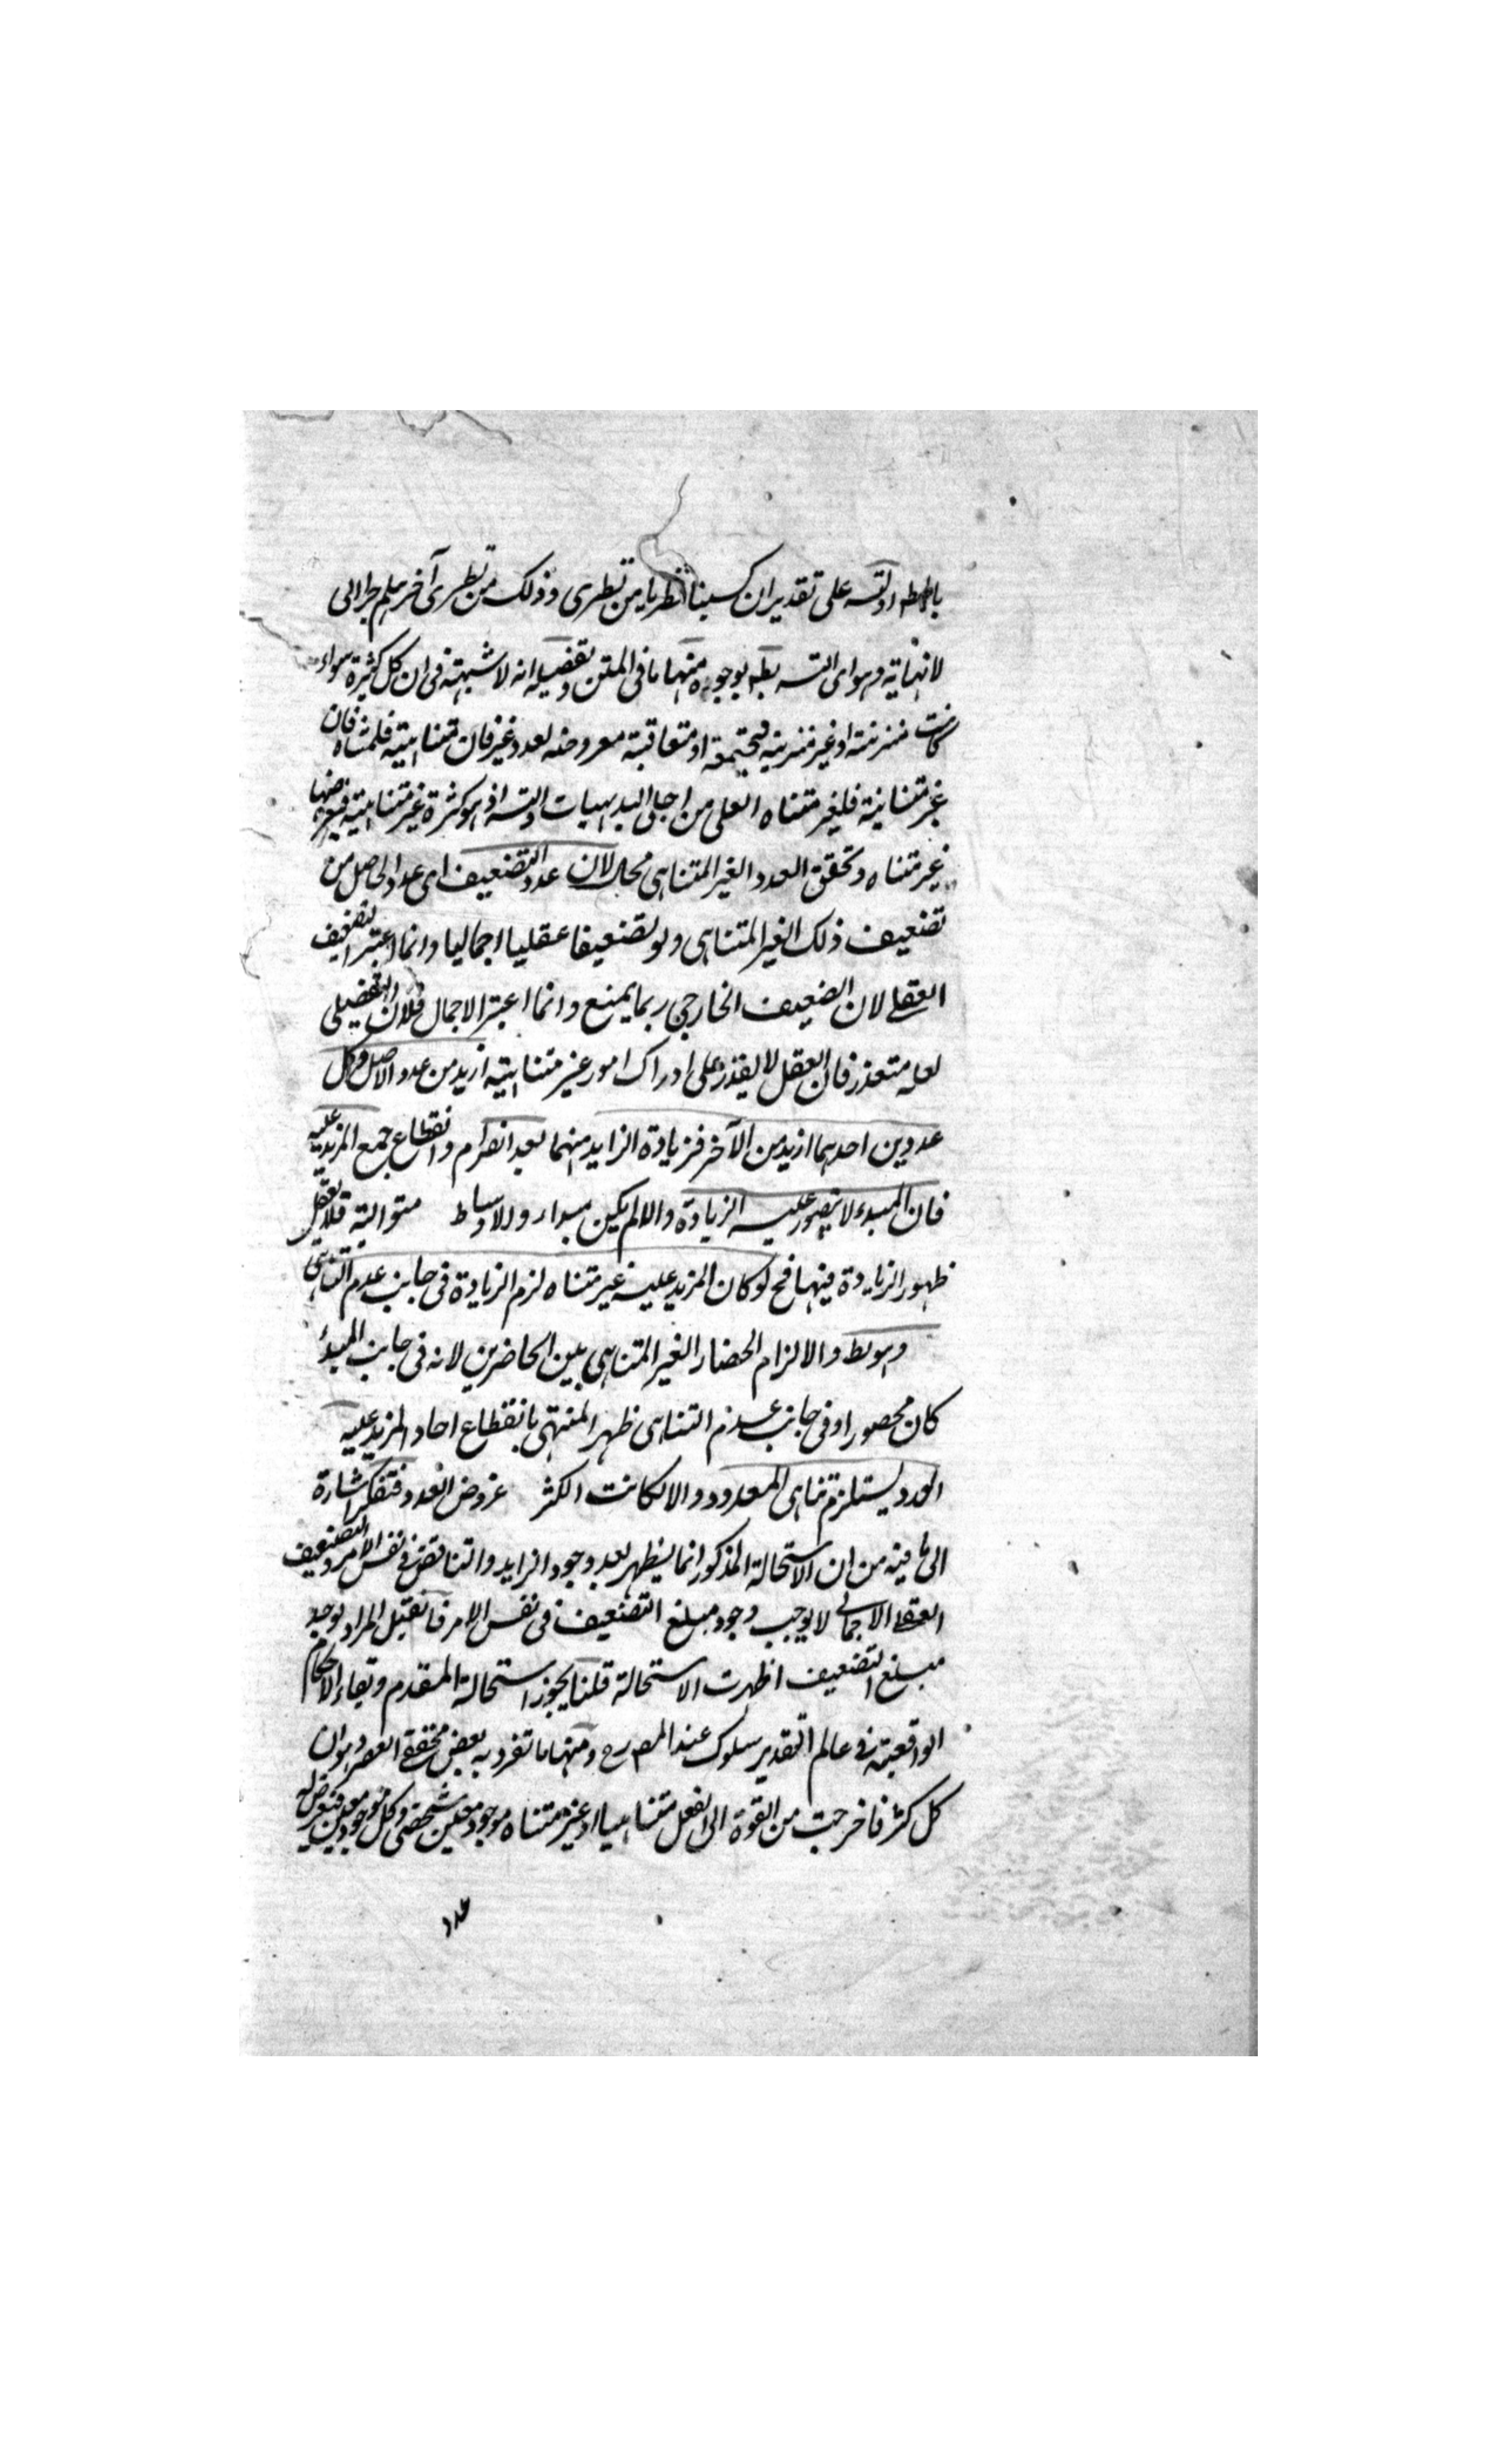 باطله او لتسه على تقدير ان كسبنا نظريا من نظرى وذلك من نظرى آخر هلم جرا الى
لا نهاية وهو اى التسه بط بوجوه منها ما فى المتن وتفصيله انه لا شبهة فى ان كل كثرة سواء
كانت مترتبة او غير مترتبة مجتمعة او متعاقبة معروضه لعدد فان متناهية فلمتناه فان
غير متناهية فلغير متناه العلى من اجلى البديهيات والتسه اذ هو كثرة غير متناهية فيعرضها
غير متناه وتحقق العدد الغير المتناهى محال لان عدد التضعيف اى عدد الحاصل من
تضعيف ذلك الغير المتناهى ولو تضعيفا عقليا اجماليا وانما اعتبر التضعيف
العقلے لان الضعيف الخارجى ربما يمنع وانما اعتبر الاجمال فلان التفصيلى
لعله متعذر فان العقل لا يقدر على ادراك امور غير متناهية ازيد من عدد الاصل وكل
عددين احدهما ازيد من الآخر فزيادة الزايد منهما بعد انصرام وانقطاع جمع المزيد عليه
فان المبدء لا يتصور عليه الزيادة والا لم يكن مبداء والاوساط متوالية فلا يعقل
ظهور الزيادة فيها فح لو كان المزيد عليه غير متناه لزم الزيادة فى جانب عدم التناهى
وهو بط والا لزام الحضار الغير المتناهى بين الحاضرين لانه فى جانب المبدء
كان محصورا وفى جانب عدم التناهى ظهر المنتهى بانقطاع احاد المزيد عليه
العدد يستلزم تناهى المعدود والا لكانت الكثر عروض العدد فتفكر اشارة
الى ما فيه من ان الاستحالة المذكور انما يظهر بعد وجود الزايد والتناقض فى نفس الامر والتضعيف
العقلے الاجمالى لا يوجب وجود مبلغ التضعيف فى نفس الامر فان قيل المراد لو وجد
مبلغ التضعيف اظهرت الاستحالة قلنا يجوز استحالة المقدم وبقاء الاحكام
الواقعية فى عالم التقدير سلوك عند المصرح ومنها ما تفرد به بعض محققے العصر وهو ان
كل كثرة خرجت من القوة الى الفعل متناهيا او غير متناه موجود معين شخصى وكل موجود معين فيعرض له
عدد